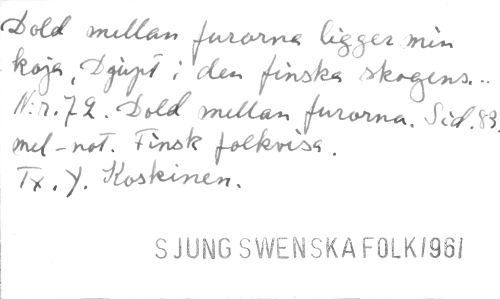 Dold mellan furorna ligger min
koja, Djupt i den finska skogens...
N:r. 72. Dold mellan furorna. Sid. 89.
mel-not. Finsk folkvisa.
Tx. Y. Koskinen.
SJUNG SWENSKA FOLK 1961